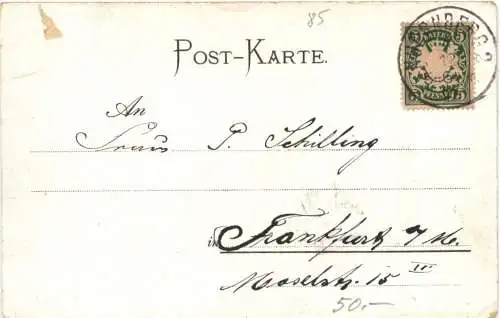 85
POST-KARTE.
An
Frau P. Schilling
in Frankfurt a/M.
Moselstr. 15 III
50.-